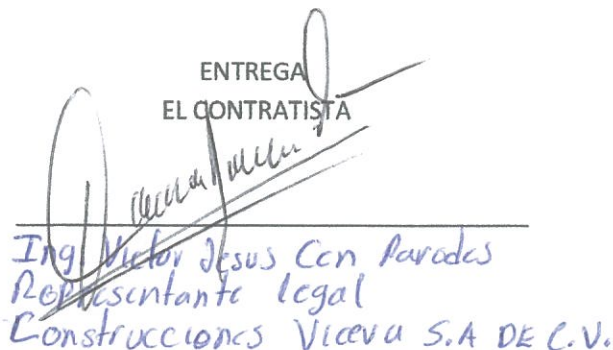 ENTREGA
EL CONTRATISTA
Ing. Victor Jesus Cen Paredes
Representante legal
Construcciones Viceva S.A DE C.V.